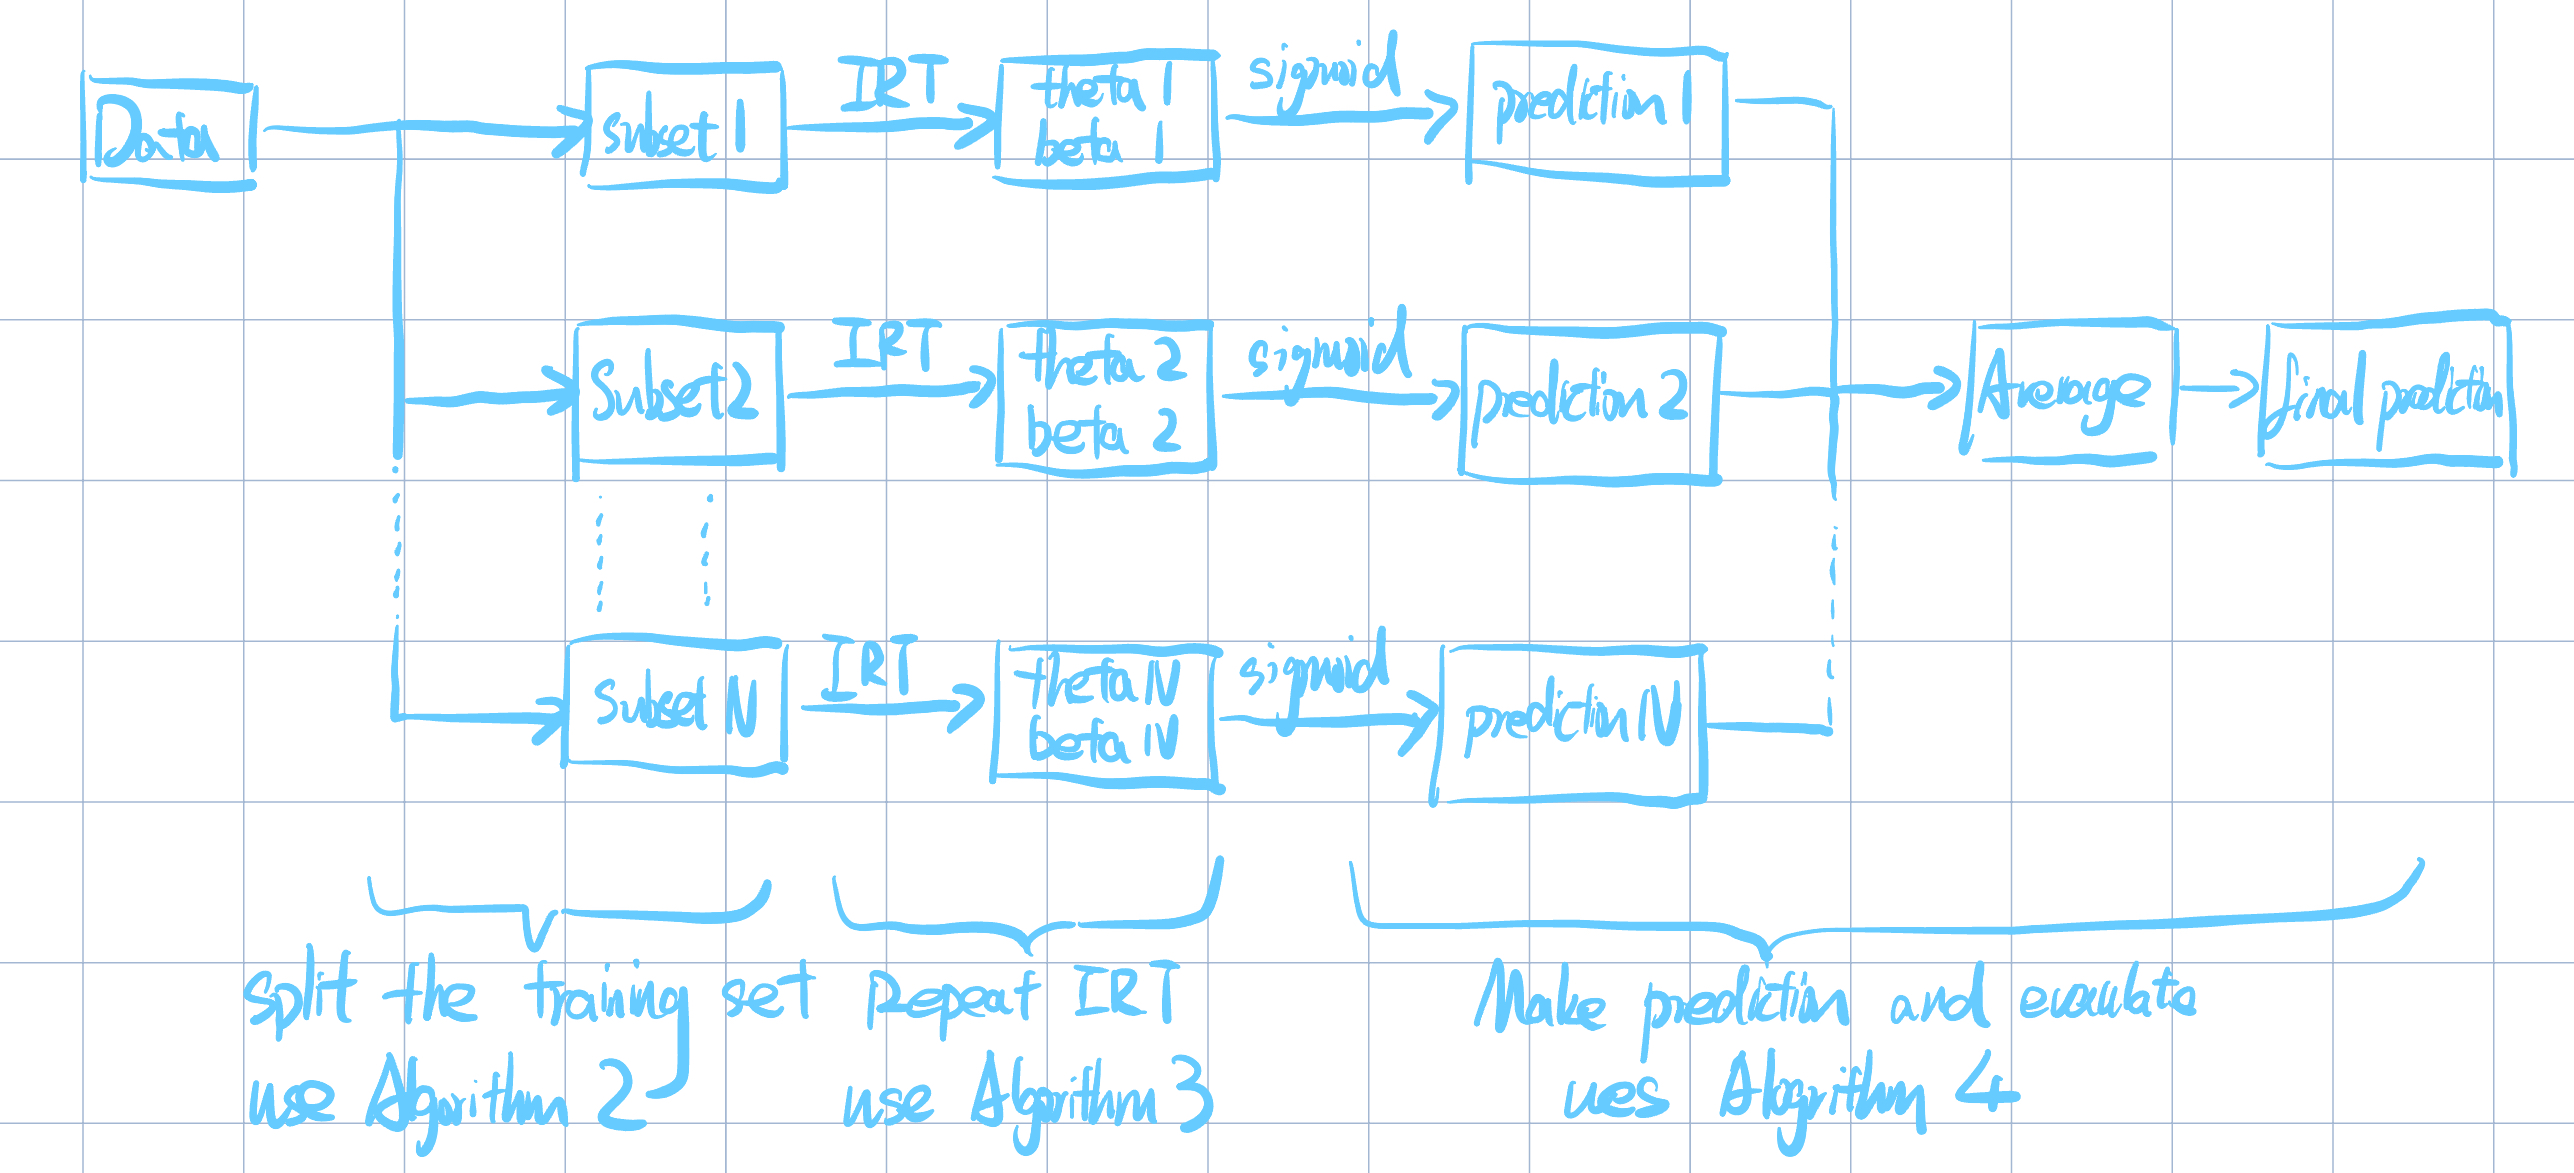 Data
subset 1
IRT
theta 1
beta 1
sigmoid
prediction 1
Subset 2
IRT
theta 2
beta 2
sigmoid
prediction 2
Average
final prediction
subset N
IRT
theta N
beta N
sigmoid
prediction N
split the training set
use Algorithm 2
Repeat IRT
use Algorithm 3
Make prediction and evaulate
ues Algorithm 4